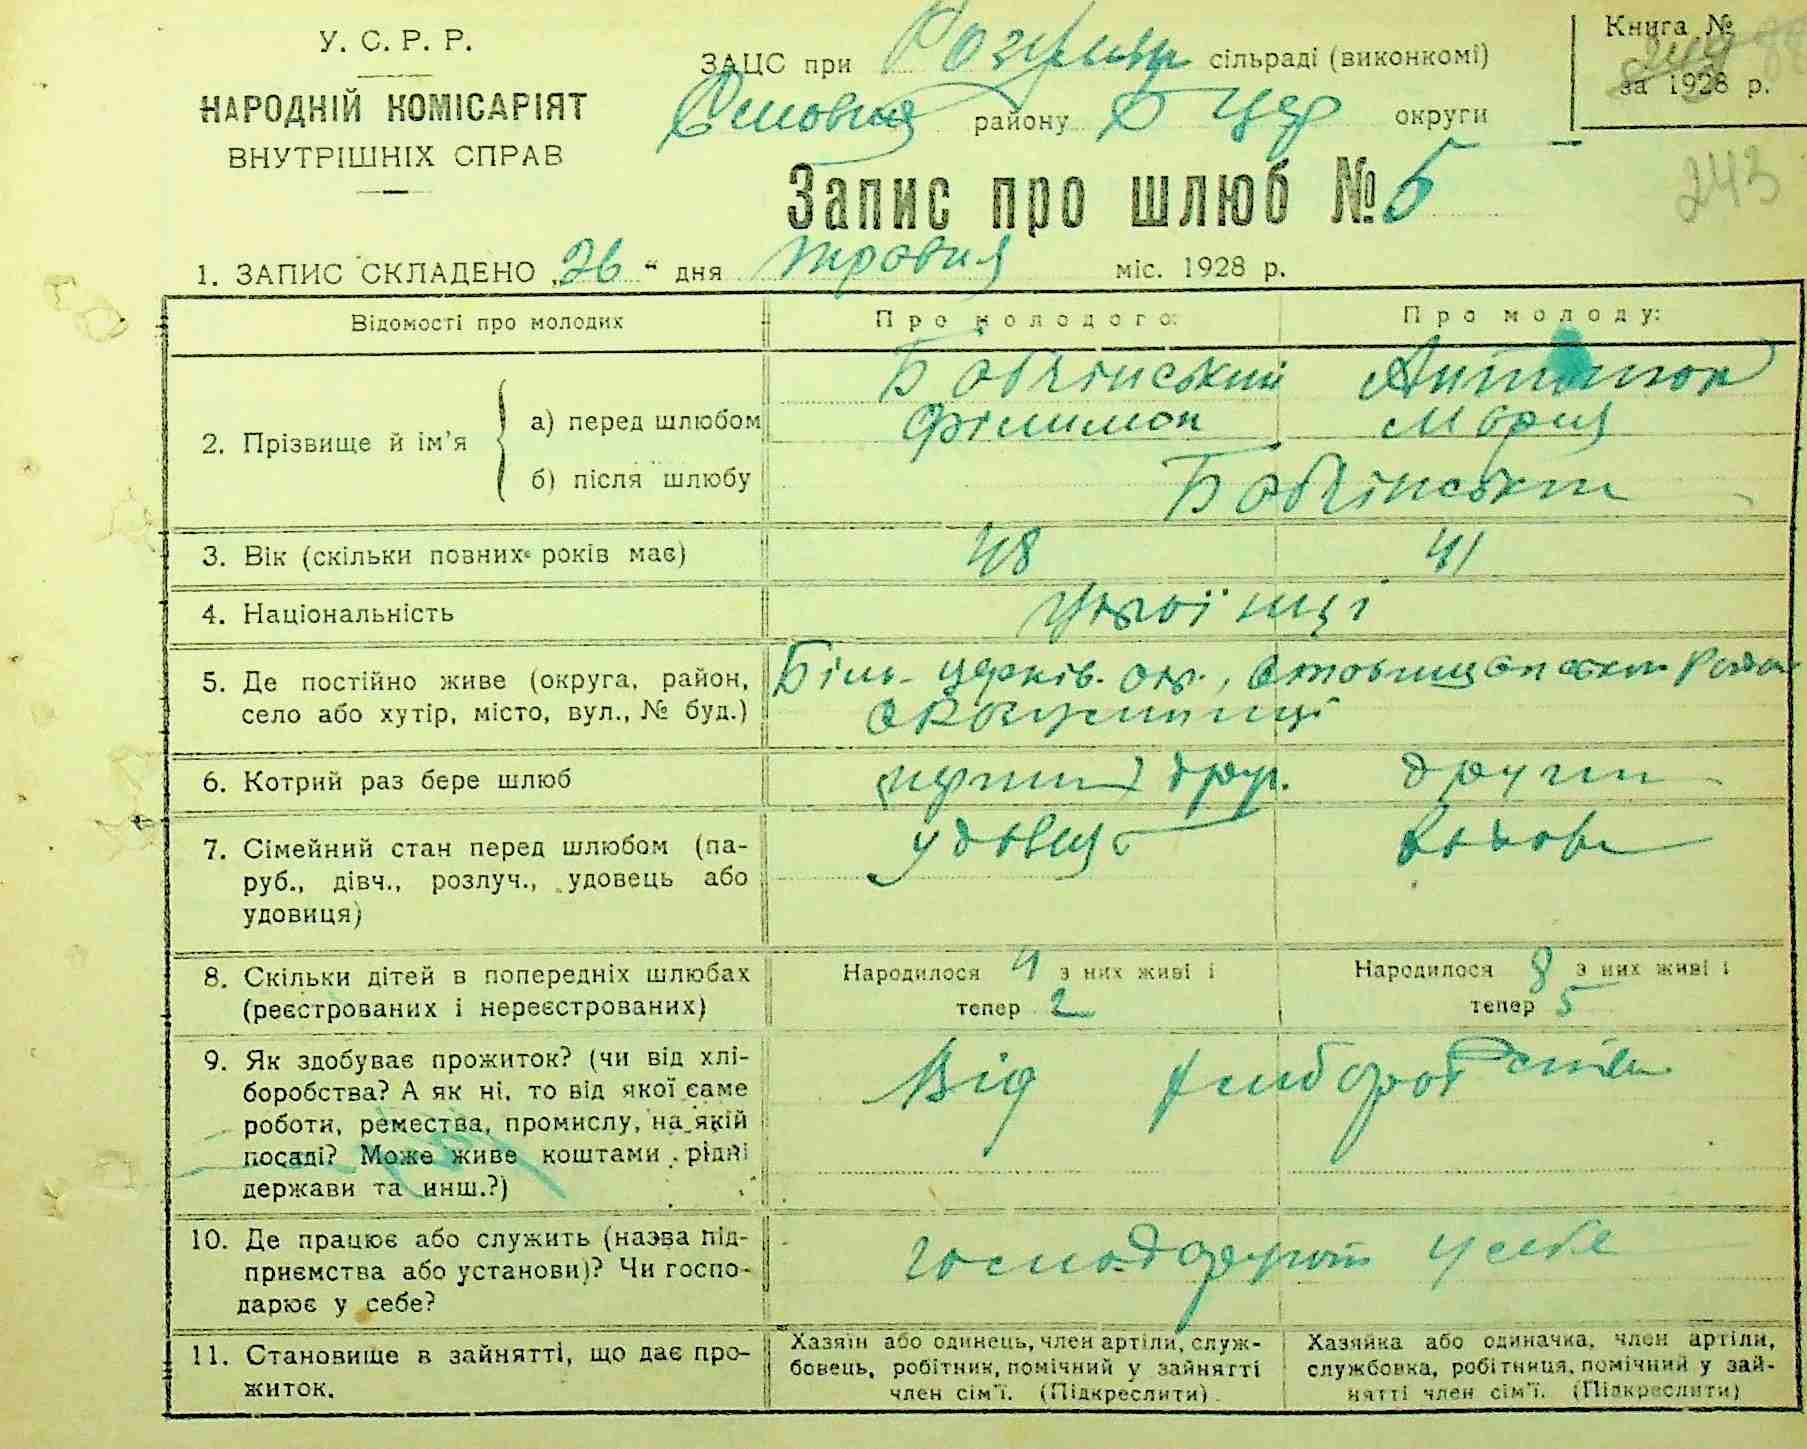 У. С. Р. Р.
НАРОДНІЙ КОМІСАРІЯТ
ВНУТРІШНІХ СПРАВ
ЗАЦС при сільраді (виконкомі)
району Б Цер округи
Книга №
за 1928 р.
243
Запис про шлюб № 5
1. ЗАПИС СКЛАДЕНО „26“ дня травня міс. 1928 р.
Відомості про молодих
Про молодого:
Про молоду:
2. Прізвище й ім'я
а) перед шлюбом
Бабчінський
Филимон
Антонюк
Мария
б) після шлюбу
Бабчінськи
3. Вік (скільки повних років має)
48
41
4. Національність
україці
5. Де постійно живе (округа, район,
село або хутір, місто, вул., № буд.)
Біль. церків. ок., район
6. Котрий раз бере шлюб
друг.
други
7. Сімейний стан перед шлюбом (па-
руб., дівч., розлуч., удовець або
удовиця)
удовець
вдова
8. Скільки дітей в попередніх шлюбах
(реєстрованих і нереєстрованих)
Народилося 4 з них живі і
тепер 2
Народилося 8 з них живі і
тепер 5
9. Як здобуває прожиток? (чи від хлі-
боробства? А як ні, то від якої саме
роботи, ремества, промислу, на якій
посаді? Може живе коштами рідні
держави та инш.?)
Від хлиборобства
10. Де працює або служить (назва під-
приємства або установи)? Чи госпо-
дарює у себе?
господарюют у себе
11. Становище в зайнятті, що дає про-
житок.
Хазяїн або одинець, член артіли, служ-
бовець, робітник, помічний у зайнятті
член сім'ї. (Підкреслити).
Хазяйка або одиначка, член артіли,
службовка, робітниця, помічний у зай-
нятті член сім'ї. (Підкреслити)